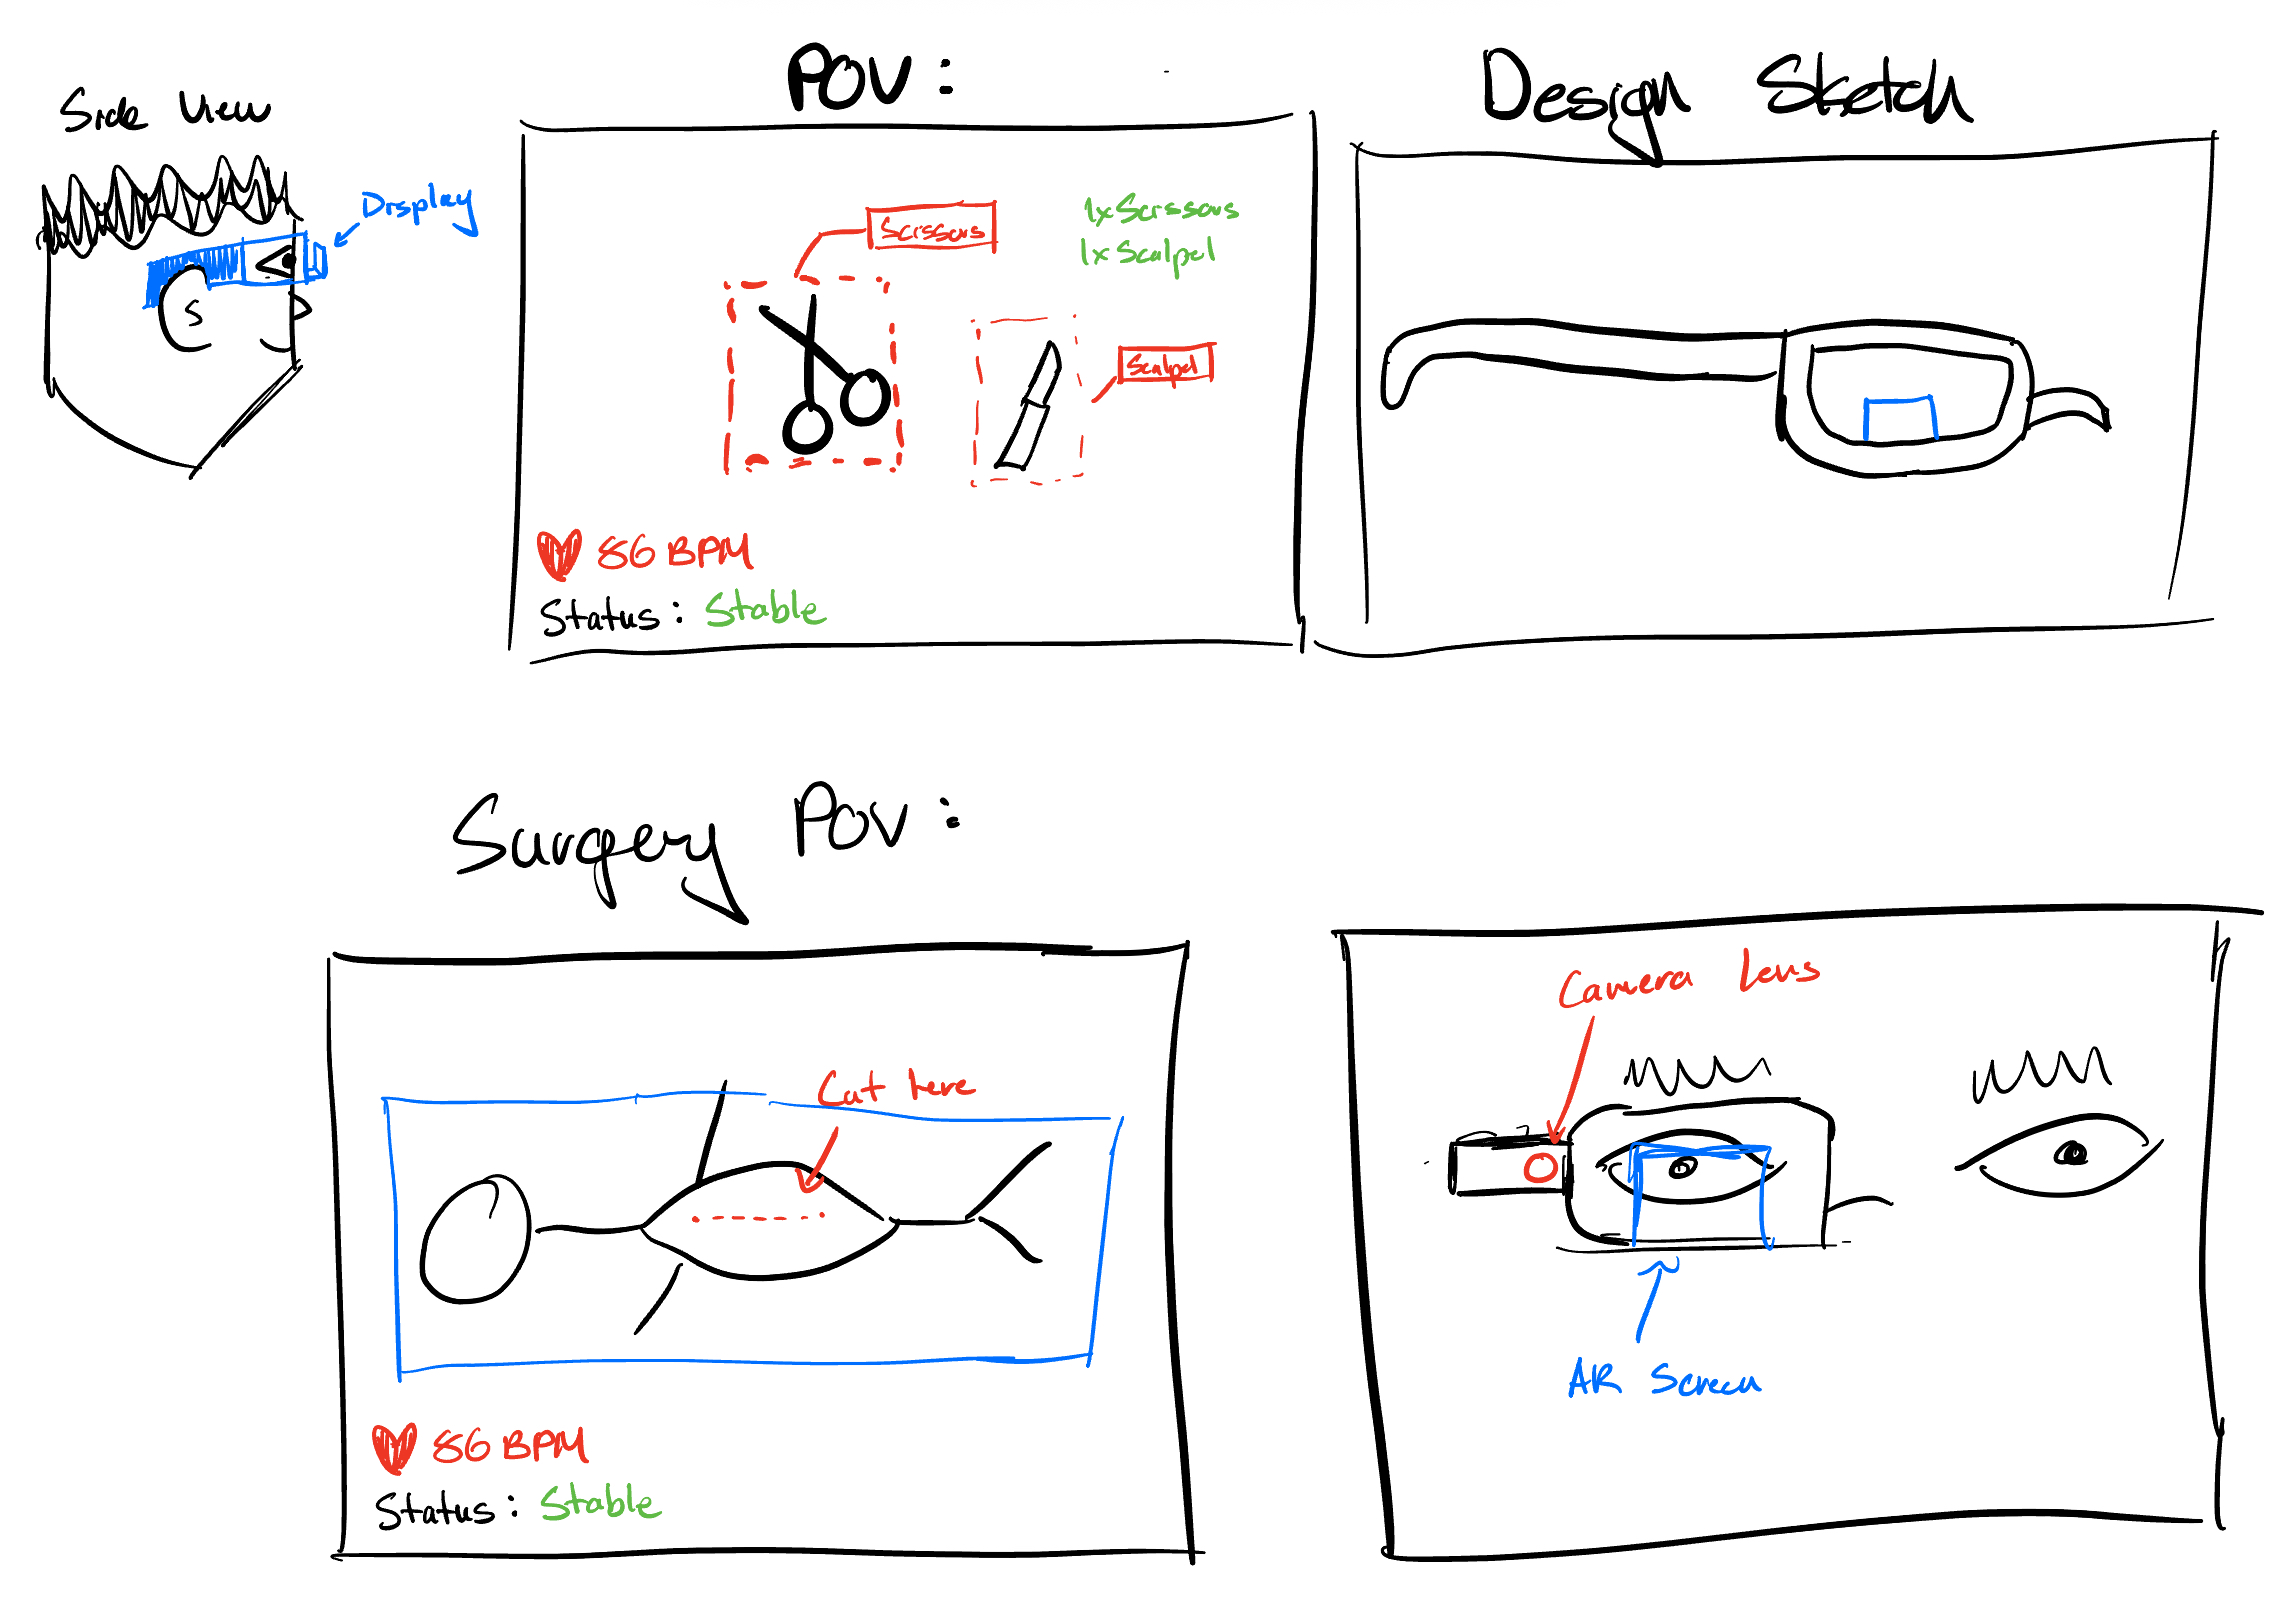 Side View
Display
POV:
Scissors
1x Scissors
1x Scalpel
Scalpel
86 BPM
Status: Stable
Design Sketch
Surgery POV:
Cut here
86 BPM
Status: Stable
Camera Lens
AR Screen